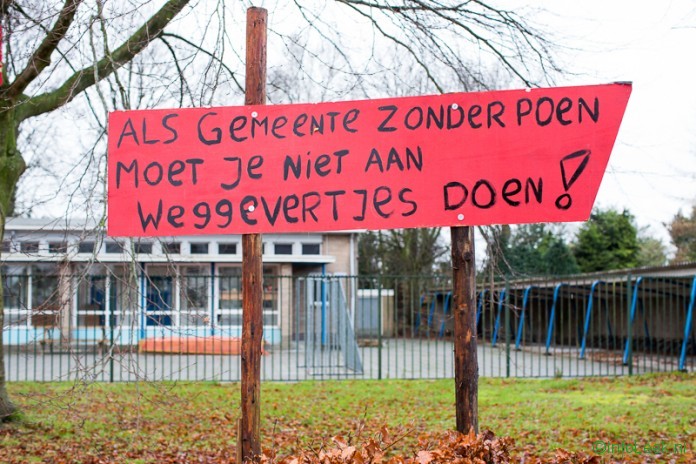 ALS GEMEENTE ZONDER POEN
MOET JE NIET AAN
WEGGEVERTJES DOEN!